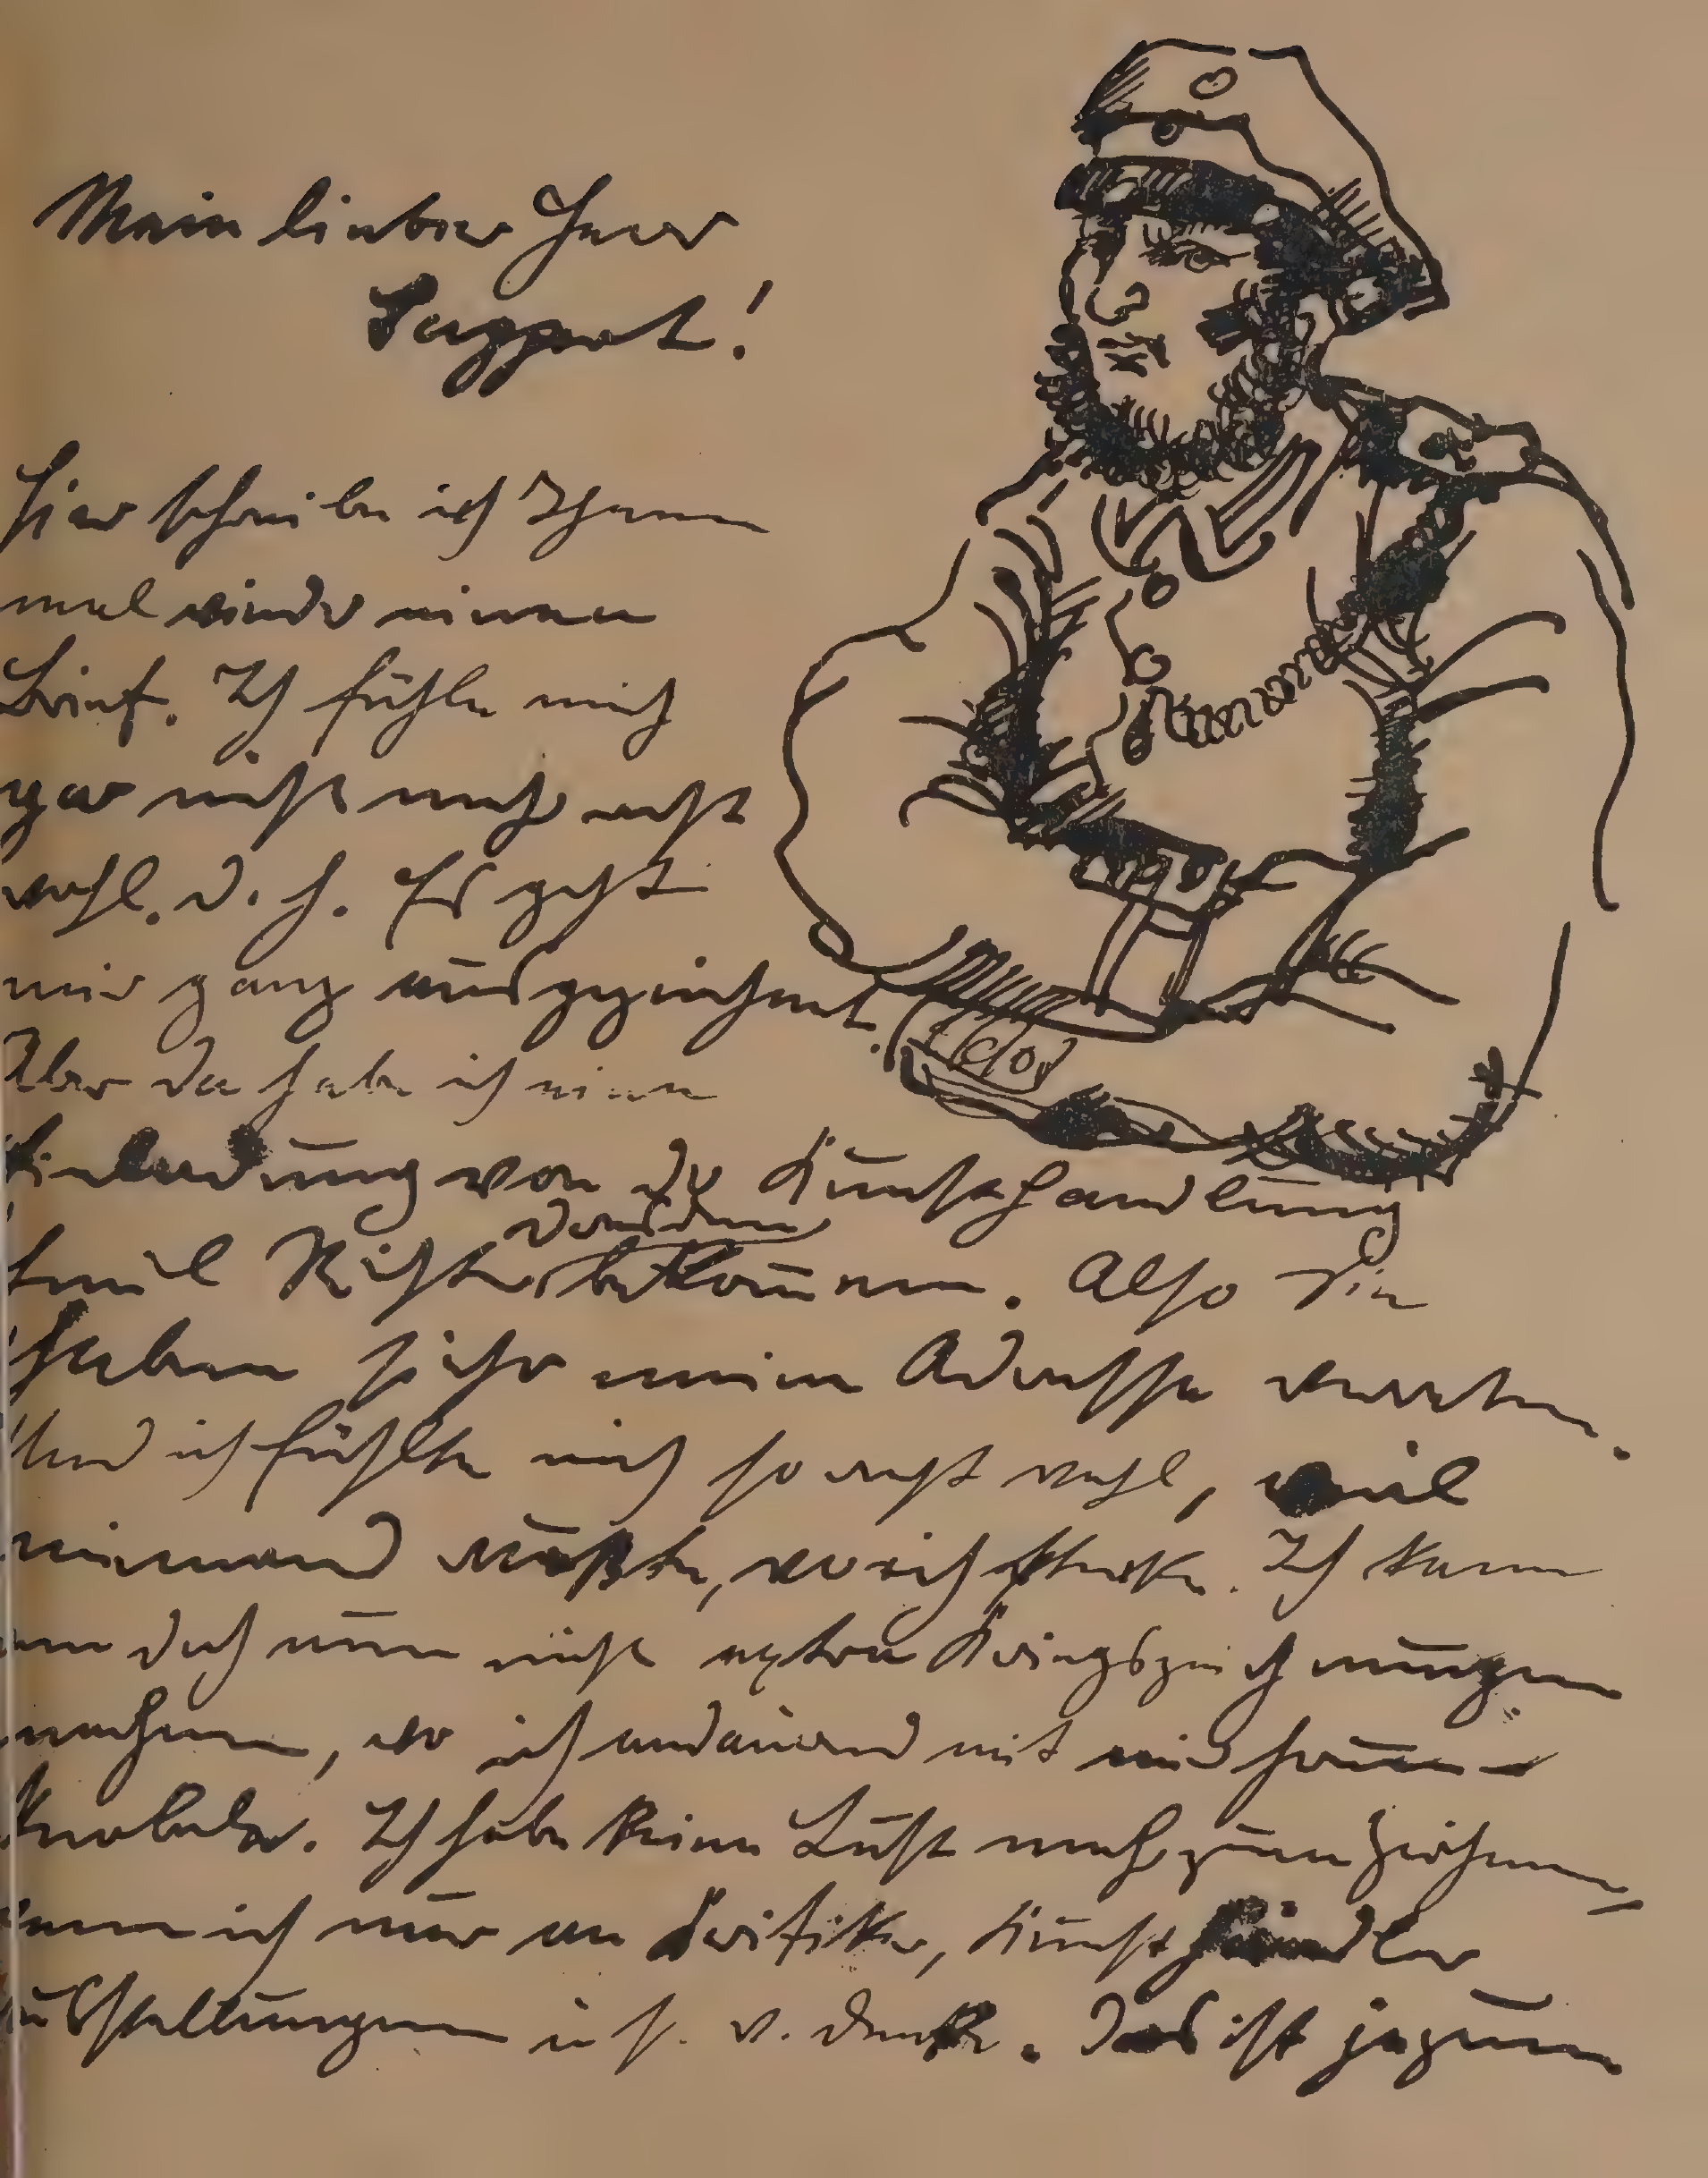 Mein lieber Herr
Tappert!
Hier schreibe ich Ihnen
mal wieder einen
Brief. Ich fühle mich
gar nicht mehr recht
wohl. d. h. Es geht
mir ganz ausgezeichnet.
Aber da habe ich eine
Einladung von der Kunsthandlung
Dresden
Emil Richter bekommen. Also Sie
haben sicher meine Adresse verraten.
Und ich fühlte mich so recht wohl, weil
niemand wußte, wo ich stecke. Ich kann
doch nun nicht extra Kriegszeichnungen
machen, wo ich andauernd mit
knobele. Ich habe keine Lust mehr zum Zeichnen,
wenn ich nur an Kritiker, Kunsthändler
Ausstellungen u. s. w. denke. Das ist ja zum